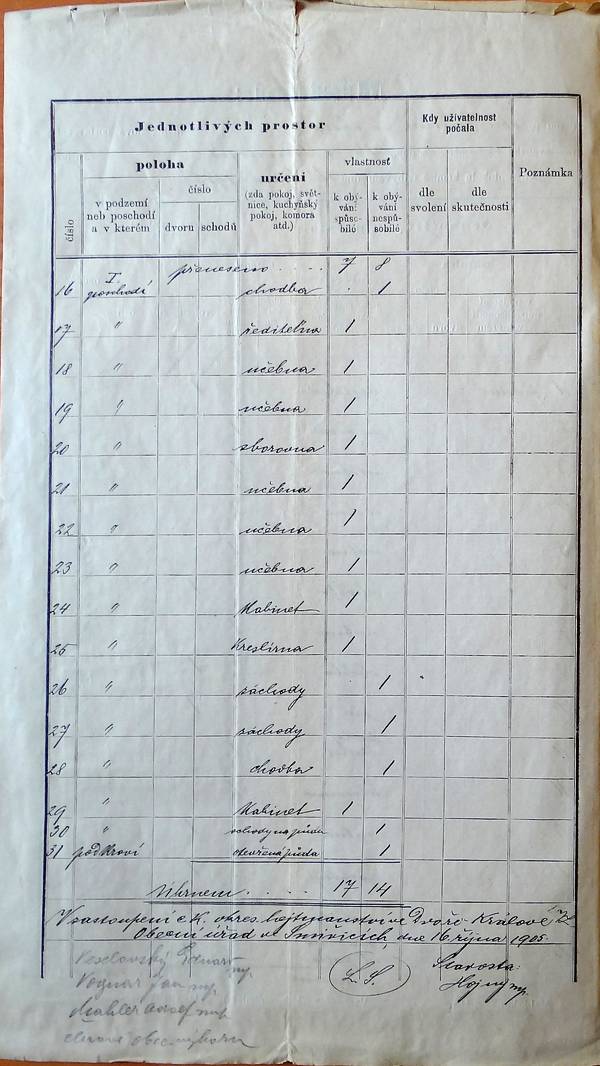 Jednotlivých prostor
Kdy uživatelnost
počala
Poznámka
číslo
poloha
určení
(zda pokoj, svět-
nice, kuchyňský
pokoj, komora
atd.)
vlastnosť
v podzemí
neb poschodí
a v kterém
číslo
dvoru schodů
k obý-
vání
způso-
bilé
k obý-
vání
nespů-
sobilé
dle
svolení
dle
skutečnosti
přeneseno . . . . 7 8
16 I. poschodí chodba . 1
17 " ředitelna 1
18 " učebna 1
19 " učebna 1
20 " sborovna 1
21 " učebna 1
22 " učebna 1
23 " učebna 1
24 " Kabinet 1
25 " Kreslírna 1
26 " záchody 1
27 " záchody 1
28 " chodba 1
29 " Kabinet 1
30 " schody na půdu 1
31 podkroví otevřená půda 1
Úhrnem . . . . . 17 14
V zastoupení c. k. okres. hejtmanství ve Dvoře Králové n/L
Obecní úřad ve Smiřicích, dne 16. října 1905.
Veselovský Eduard mp.
L. S.
Starosta:
Hojný mp.
Vognar Jan mp.
Mahler Josef mp.
členové obec. výboru